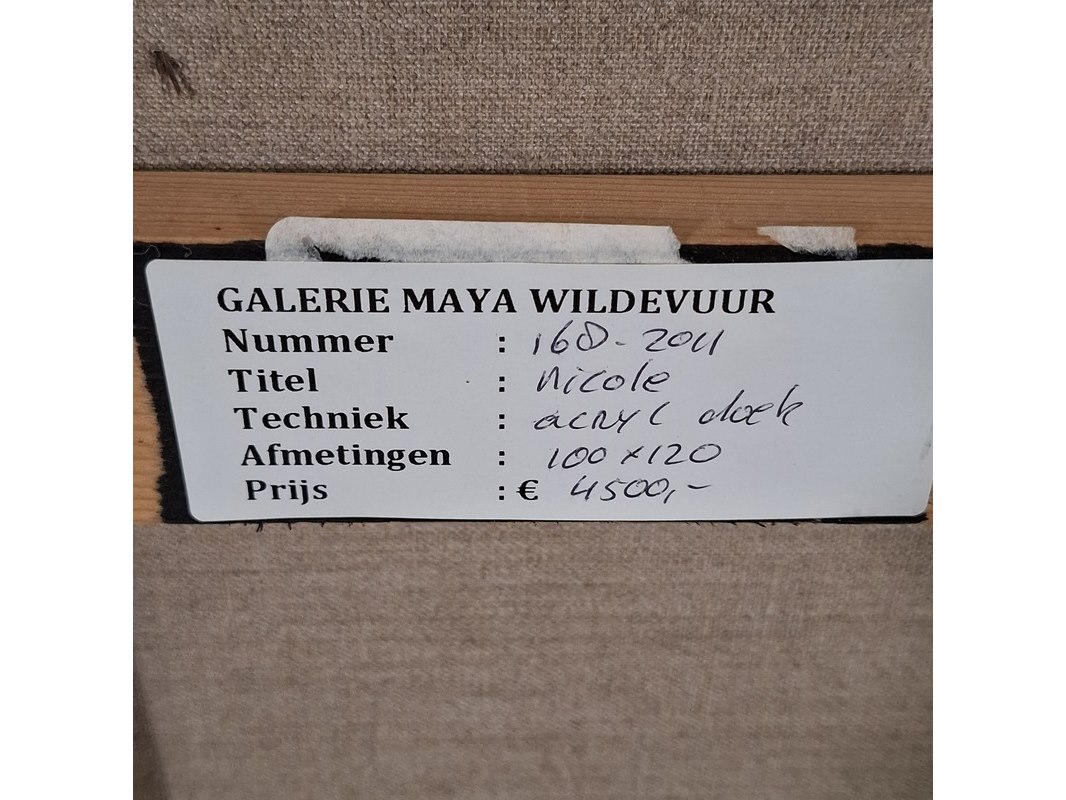 GALERIE MAYA WILDEVUUR
Nummer : 168-2011
Titel : Nicole
Techniek : acryl doek
Afmetingen : 100 x 120
Prijs : € 4500,-